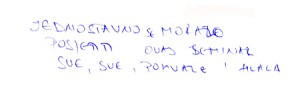 JEDNOSTAVNO SE MORALO
POSJETITI OVAJ SEMINAR
SVE, SVE, POHVALE I HVALA